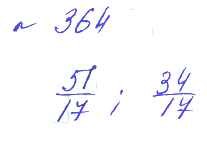 ~ 364
51/17 ; 34/17